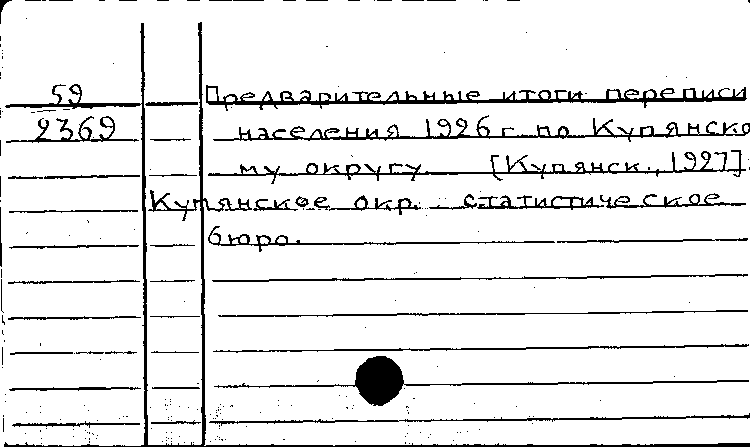 59
2369
Предварительные итоги переписи
населения 1926 г. по Купянско
му округу. [Купянск., 1927].
Купянское окр. статистическое
бюро.